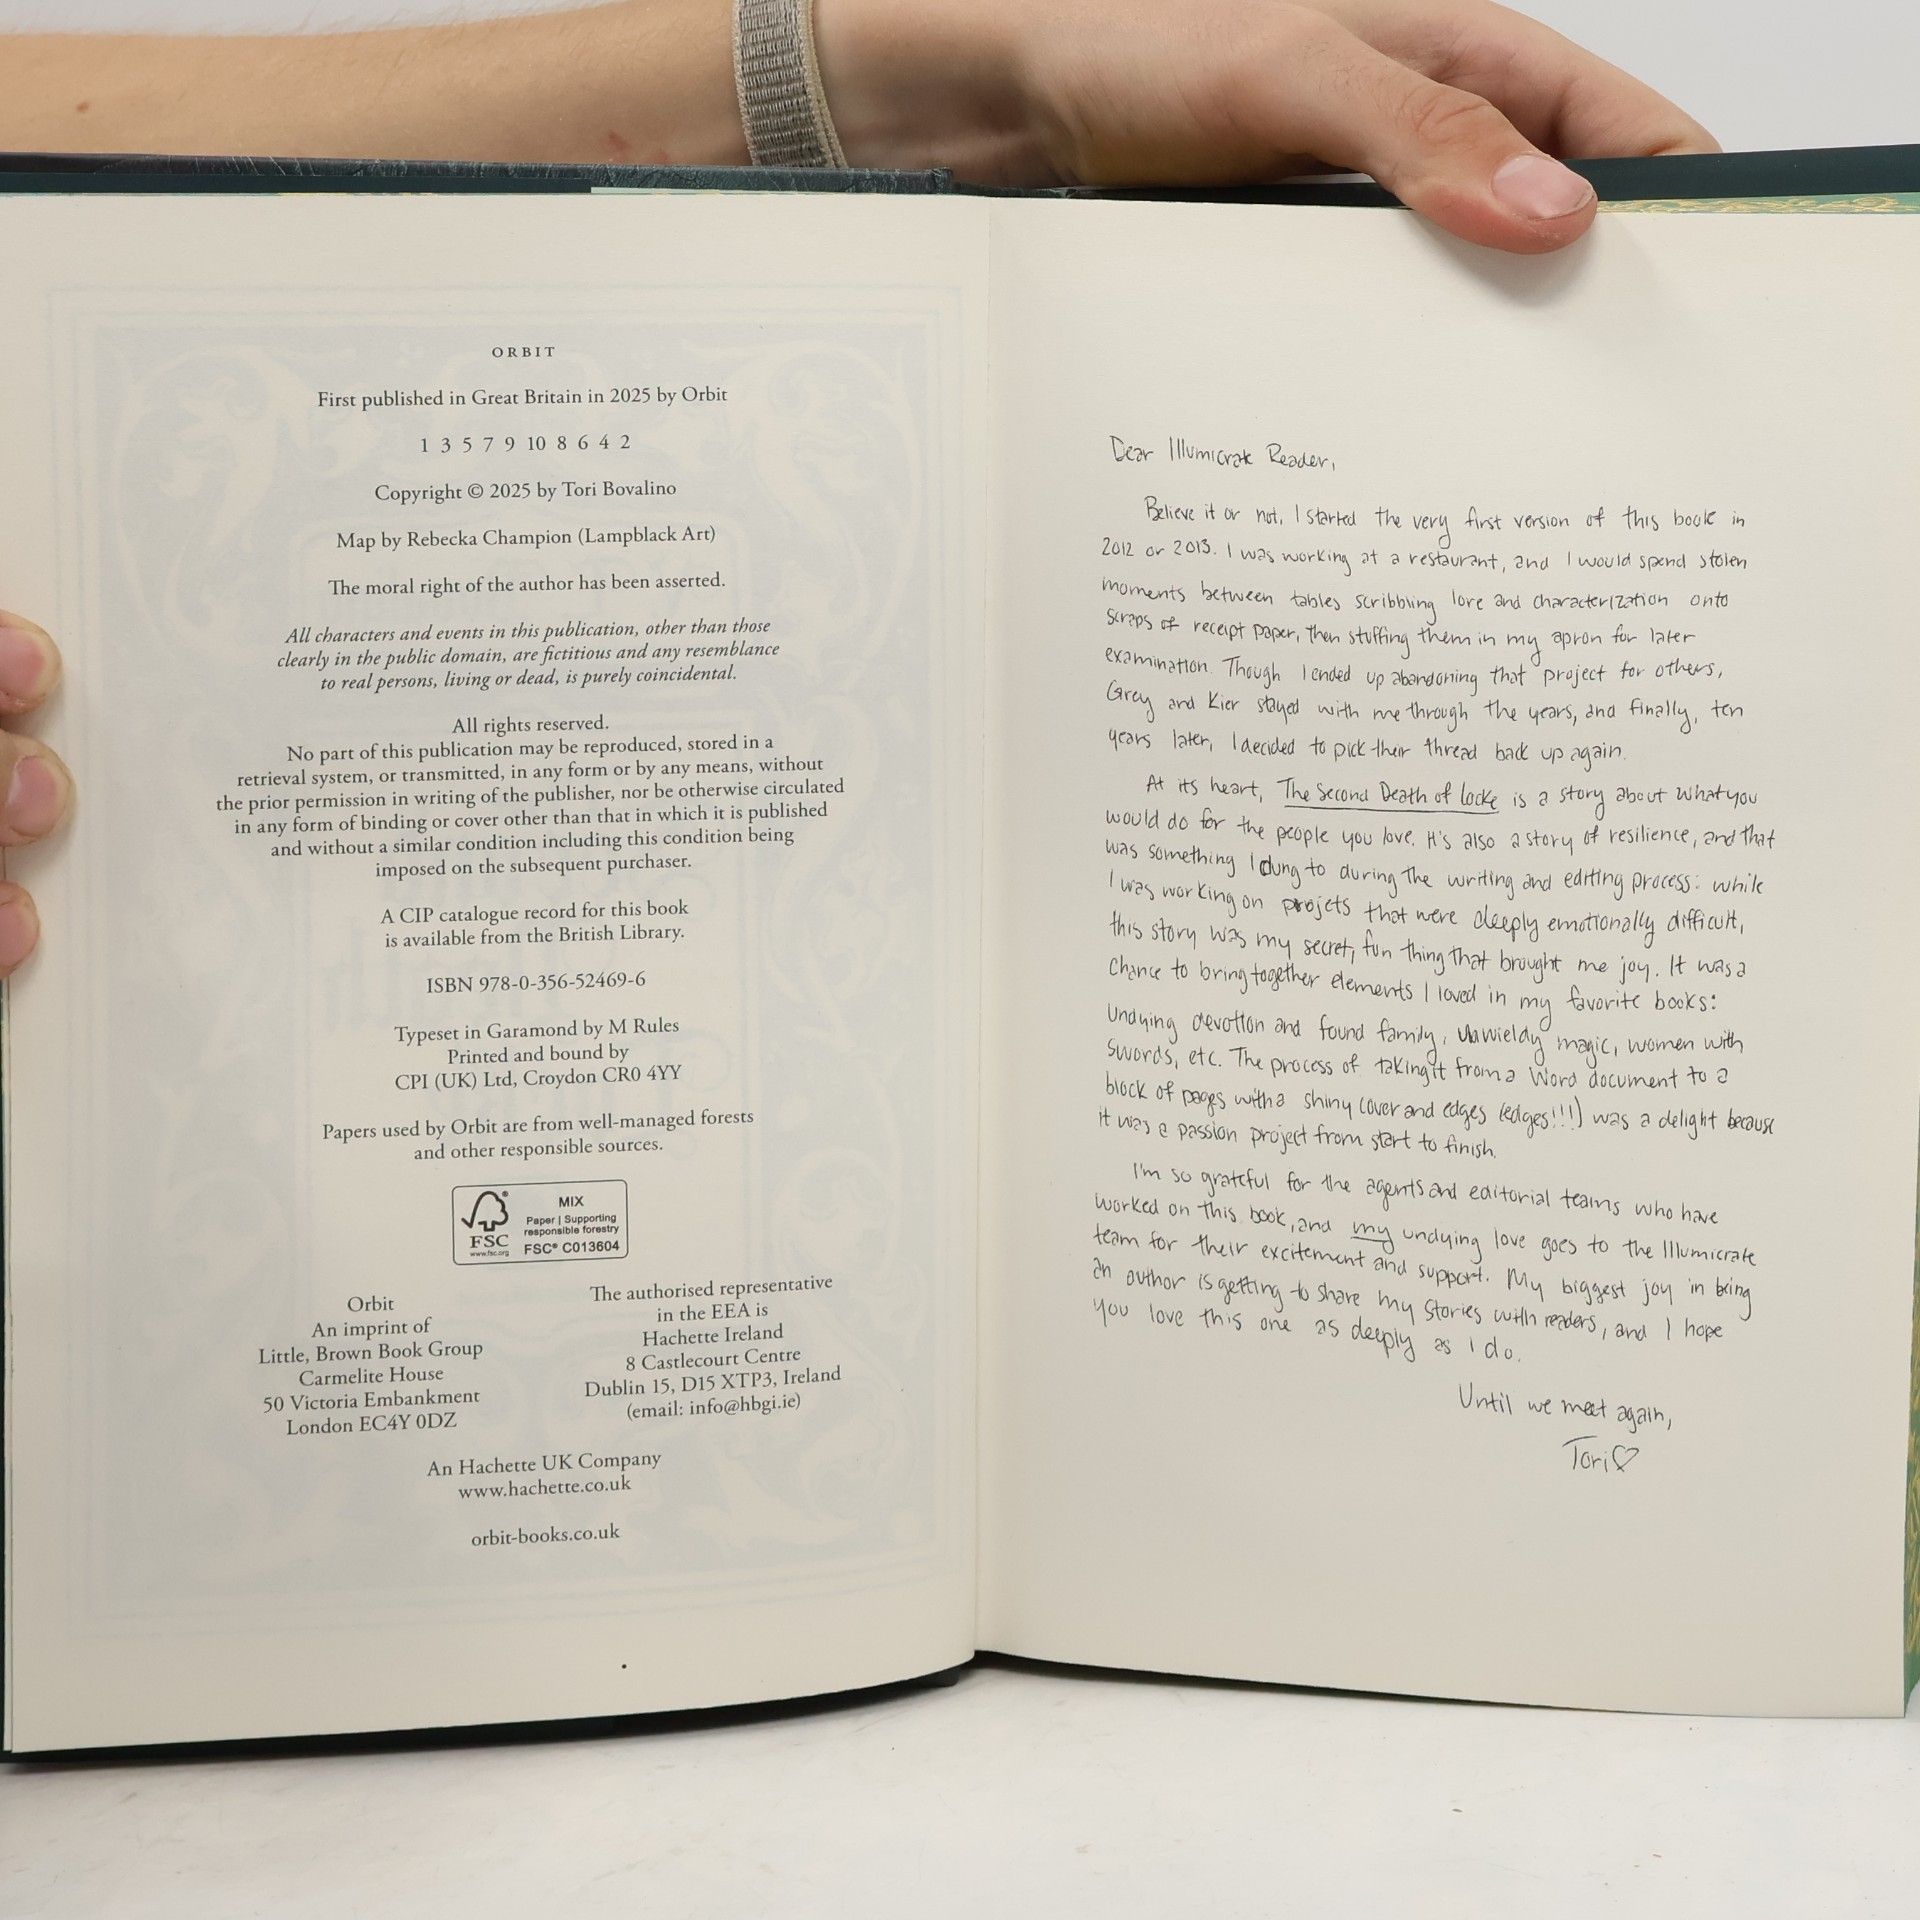 ORBIT
First published in Great Britain in 2025 by Orbit
1 3 5 7 9 10 8 6 4 2
Copyright © 2025 by Tori Bovalino
Map by Rebecka Champion (Lampblack Art)
The moral right of the author has been asserted.
All characters and events in this publication, other than those
clearly in the public domain, are fictitious and any resemblance
to real persons, living or dead, is purely coincidental.
All rights reserved.
No part of this publication may be reproduced, stored in a
retrieval system, or transmitted, in any form or by any means, without
the prior permission in writing of the publisher, nor be otherwise circulated
in any form of binding or cover other than that in which it is published
and without a similar condition including this condition being
imposed on the subsequent purchaser.
A CIP catalogue record for this book
is available from the British Library.
ISBN 978-0-356-52469-6
Typeset in Garamond by M Rules
Printed and bound by
CPI (UK) Ltd, Croydon CR0 4YY
Papers used by Orbit are from well-managed forests
and other responsible sources.
FSC®
www.fsc.org
MIX
Paper | Supporting
responsible forestry
FSC® C013604
Orbit
An imprint of
Little, Brown Book Group
Carmelite House
50 Victoria Embankment
London EC4Y 0DZ
The authorised representative
in the EEA is
Hachette Ireland
8 Castlecourt Centre
Dublin 15, D15 XTP3, Ireland
(email: info@hbgi.ie)
An Hachette UK Company
www.hachette.co.uk
orbit-books.co.uk
Dear Illumicrate Reader,
Believe it or not, I started the very first version of this book in
2012 or 2013. I was working at a restaurant, and I would spend stolen
moments between tables scribbling lore and characterization onto
scraps of receipt paper, then stuffing them in my apron for later
examination. Though I ended up abandoning that project for others,
Grey and Kier stayed with me through the years, and finally, ten
years later, I decided to pick their thread back up again.
At its heart, The Second Death of Locke is a story about what you
would do for the people you love. It's also a story of resilience, and that
was something I clung to during the writing and editing process: while
I was working on projets that were deeply emotionally difficult,
this story was my secret, fun thing that brought me joy. It was a
chance to bring together elements I loved in my favorite books:
undying devotion and found family, unwieldy magic, women with
swords, etc. The process of taking it from a Word document to a
block of pages with a shiny cover and edges (edges!!!) was a delight because
it was a passion project from start to finish.
I'm so grateful for the agents and editorial teams who have
worked on this book, and my undying love goes to the Illumicrate
team for their excitement and support. My biggest joy in being
an author is getting to share my stories with readers, and I hope
you love this one as deeply as I do.
Until we meet again,
Tori♡